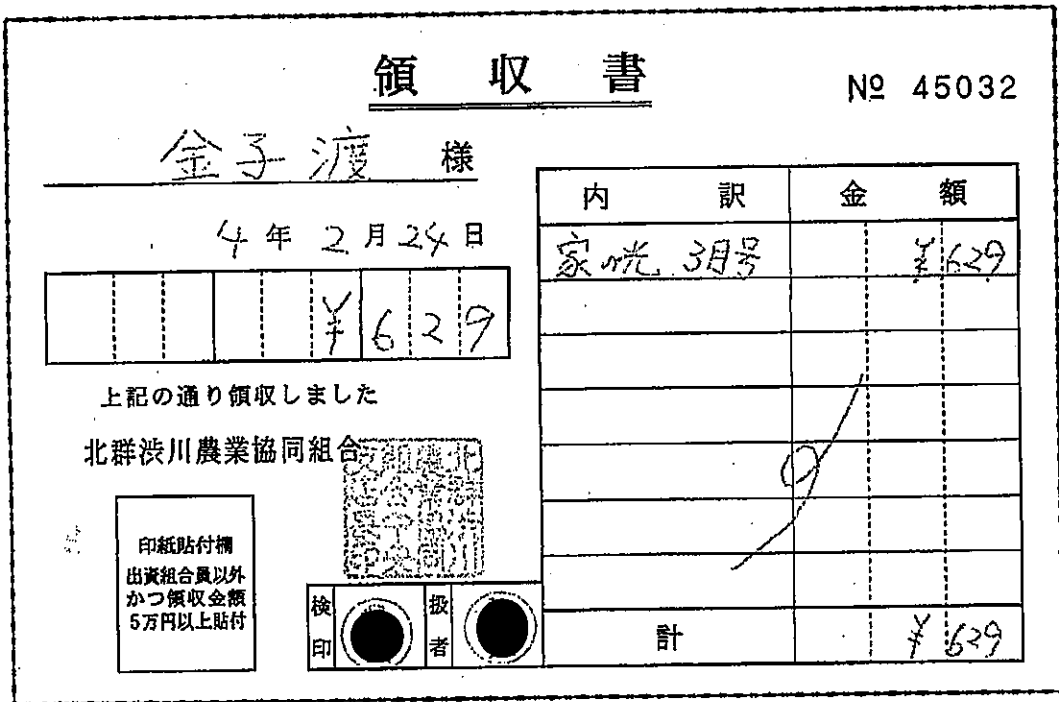 領収書
№ 45032
金子渡 様
4年2月24日
¥629
上記の通り領収しました
北群渋川農業協同組合
印紙貼付欄
出資組合員以外
かつ領収金額
5万円以上貼付
検印
扱者
内訳 金額
家の光 3月号 ¥629
計 ¥629